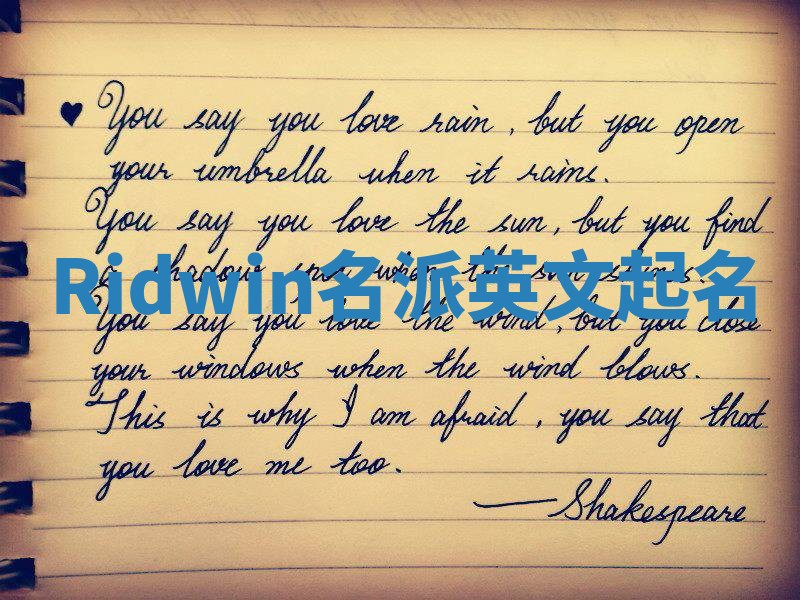 ♥ You say you love rain, but you open
your umbrella when it rains.
You say you love the sun, but you find
a shadow spot when the sun shines.
Ridwin名派英文起名
You say you love the wind, but you close
your windows when the wind blows.
This is why I am afraid, you say that
you love me too.
—Shakespeare